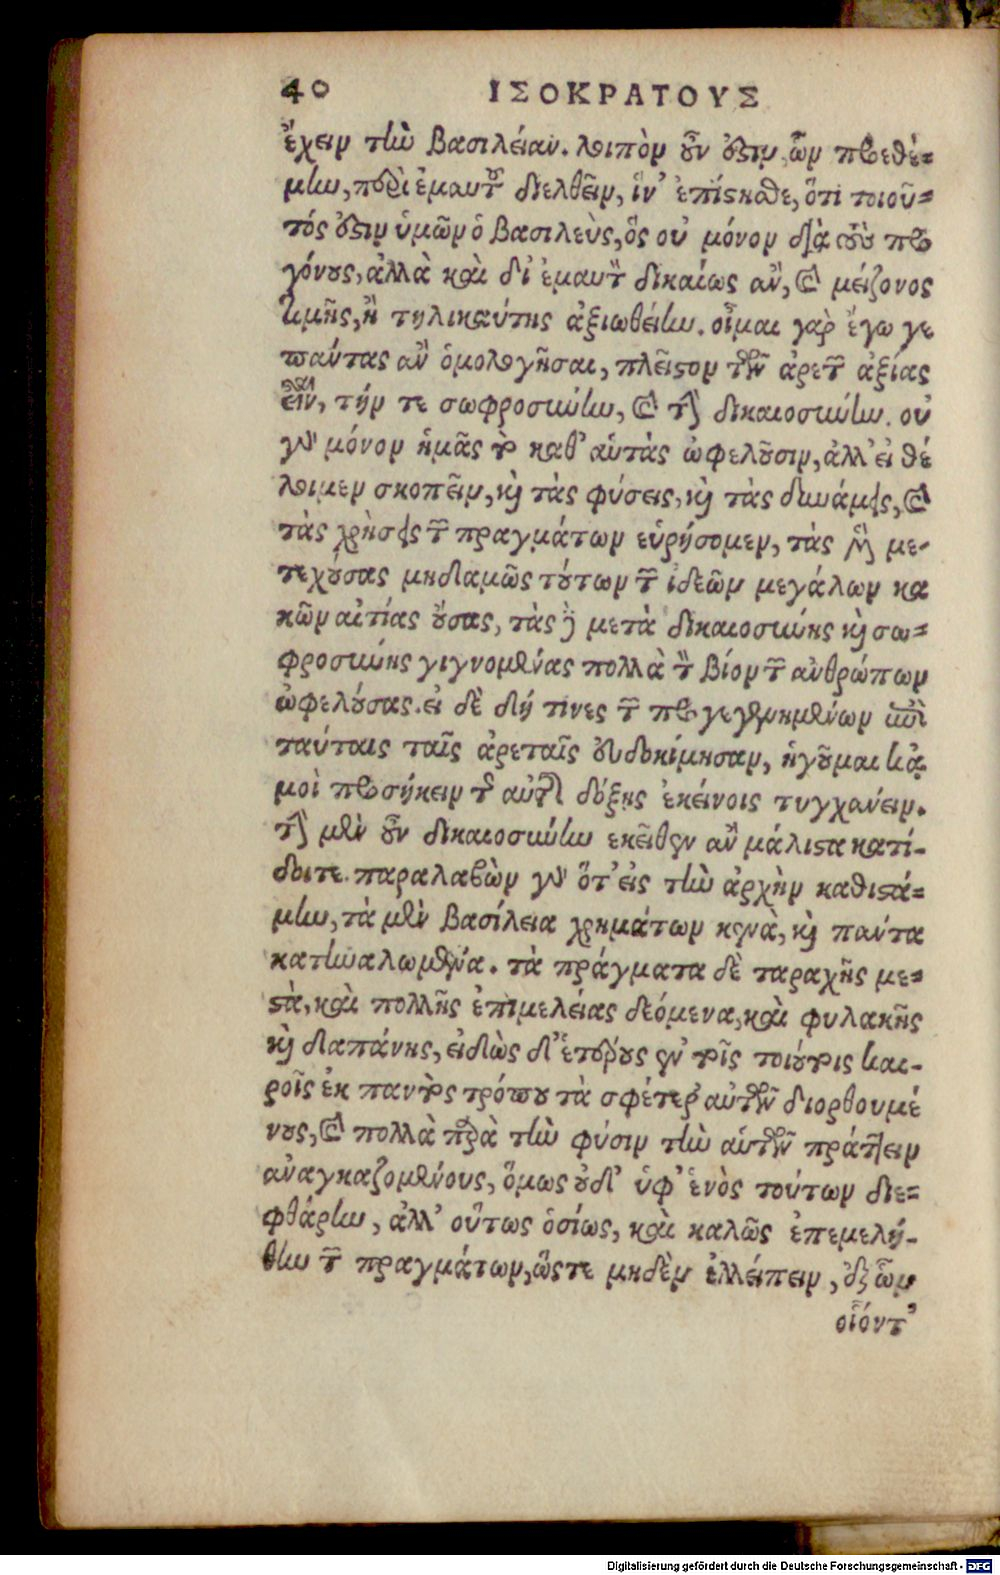 40 ΙΣΟΚΡΑΤΟΥΣ
ἔχειν τὴν βασιλείαν. λοιπὸν οὖν ἐστιν, ὧν προεθέ-
μην, περὶ ἐμαυτοῦ διελθεῖν, ἵν' ἐπίστησθε, ὅτι τοιοῦ-
τός ἐστιν ὑμῶν ὁ βασιλεὺς, ὃς οὐ μόνον διὰ τοὺς προ
γόνους, ἀλλὰ καὶ δι' ἐμαυτὸν δικαίως ἂν, καὶ μείζονος
τιμῆς, ἢ τηλικαύτης ἀξιωθείην. οἶμαι γὰρ ἔγω γε
πάντας ἂν ὁμολογῆσαι, πλεῖστον τῶν ἀρετῶν ἀξίας
εἶναι, τήν τε σωφροσύνην, καὶ τὴν δικαιοσύνην. οὐ
γὰρ μόνον ἡμᾶς τὸ καθ' αὑτὰς ὠφελοῦσιν, ἀλλ' εἰ θέ
λοιμεν σκοπεῖν, καὶ τὰς φύσεις, καὶ τὰς δυνάμεις, καὶ
τὰς χρήσεις τῶν πραγμάτων εὑρήσομεν, τὰς μὴ με-
τεχούσας μηδαμῶς τούτων τῶν ἰδεῶν μεγάλων κα
κῶν αἰτίας οὔσας, τὰς δὲ μετὰ δικαιοσύνης καὶ σω-
φροσύνης γιγνομένας πολλὰ τὸν βίον τῶν ἀνθρώπων
ὠφελούσας. εἰ δὲ δή τινες τῶν προγεγενημένων ἐπὶ
ταύταις ταῖς ἀρεταῖς εὐδοκίμησαν, ἡγοῦμαι κἀ
μοὶ προσήκειν τῆς αὐτῆς δόξης ἐκείνοις τυγχάνειν.
τὴν μὲν οὖν δικαιοσύνην ἐκεῖθεν ἂν μάλιστα κατί-
δοιτε. παραλαβὼν γὰρ ὅτ' εἰς τὴν ἀρχὴν καθιστά-
μην, τὰ μὲν βασίλεια χρημάτων κενὰ, καὶ πάντα
κατηναλωμένα. τὰ πράγματα δὲ ταραχῆς με-
στὰ, καὶ πολλῆς ἐπιμελείας δεόμενα, καὶ φυλακῆς
καὶ δαπάνης, εἰδὼς δ' ἑτέρους ἐν τοῖς τοιούτοις και-
ροῖς ἐκ παντὸς τρόπου τὰ σφέτερ' αὐτῶν διορθουμέ
νους, καὶ πολλὰ παρὰ τὴν φύσιν τὴν αὑτῶν πράττειν
ἀναγκαζομένους, ὅμως οὐδ' ὑφ' ἑνὸς τούτων διε-
φθάρην, ἀλλ' οὕτως ὁσίως, καὶ καλῶς ἐπεμελή-
θην τῶν πραγμάτων, ὥστε μηδὲν ἐλλείπειν, ἐξ ὧν
οἷόντ'
Digitalisierung gefördert durch die Deutsche Forschungsgemeinschaft - DFG